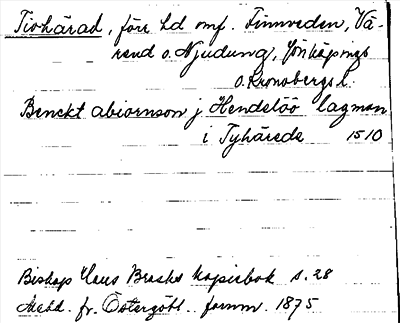 Tiohärad, förr ld omf. Finnveden, Vä-
rend o. Njudung, Jönköpings
o. Kronobergs l.
Benckt abiornson j Hendelöö lagman
i Tyhärede 1510
Biskop Hans Brasks kopiebok s. 28
Medd. fr. Östergötl. fornm. 1875